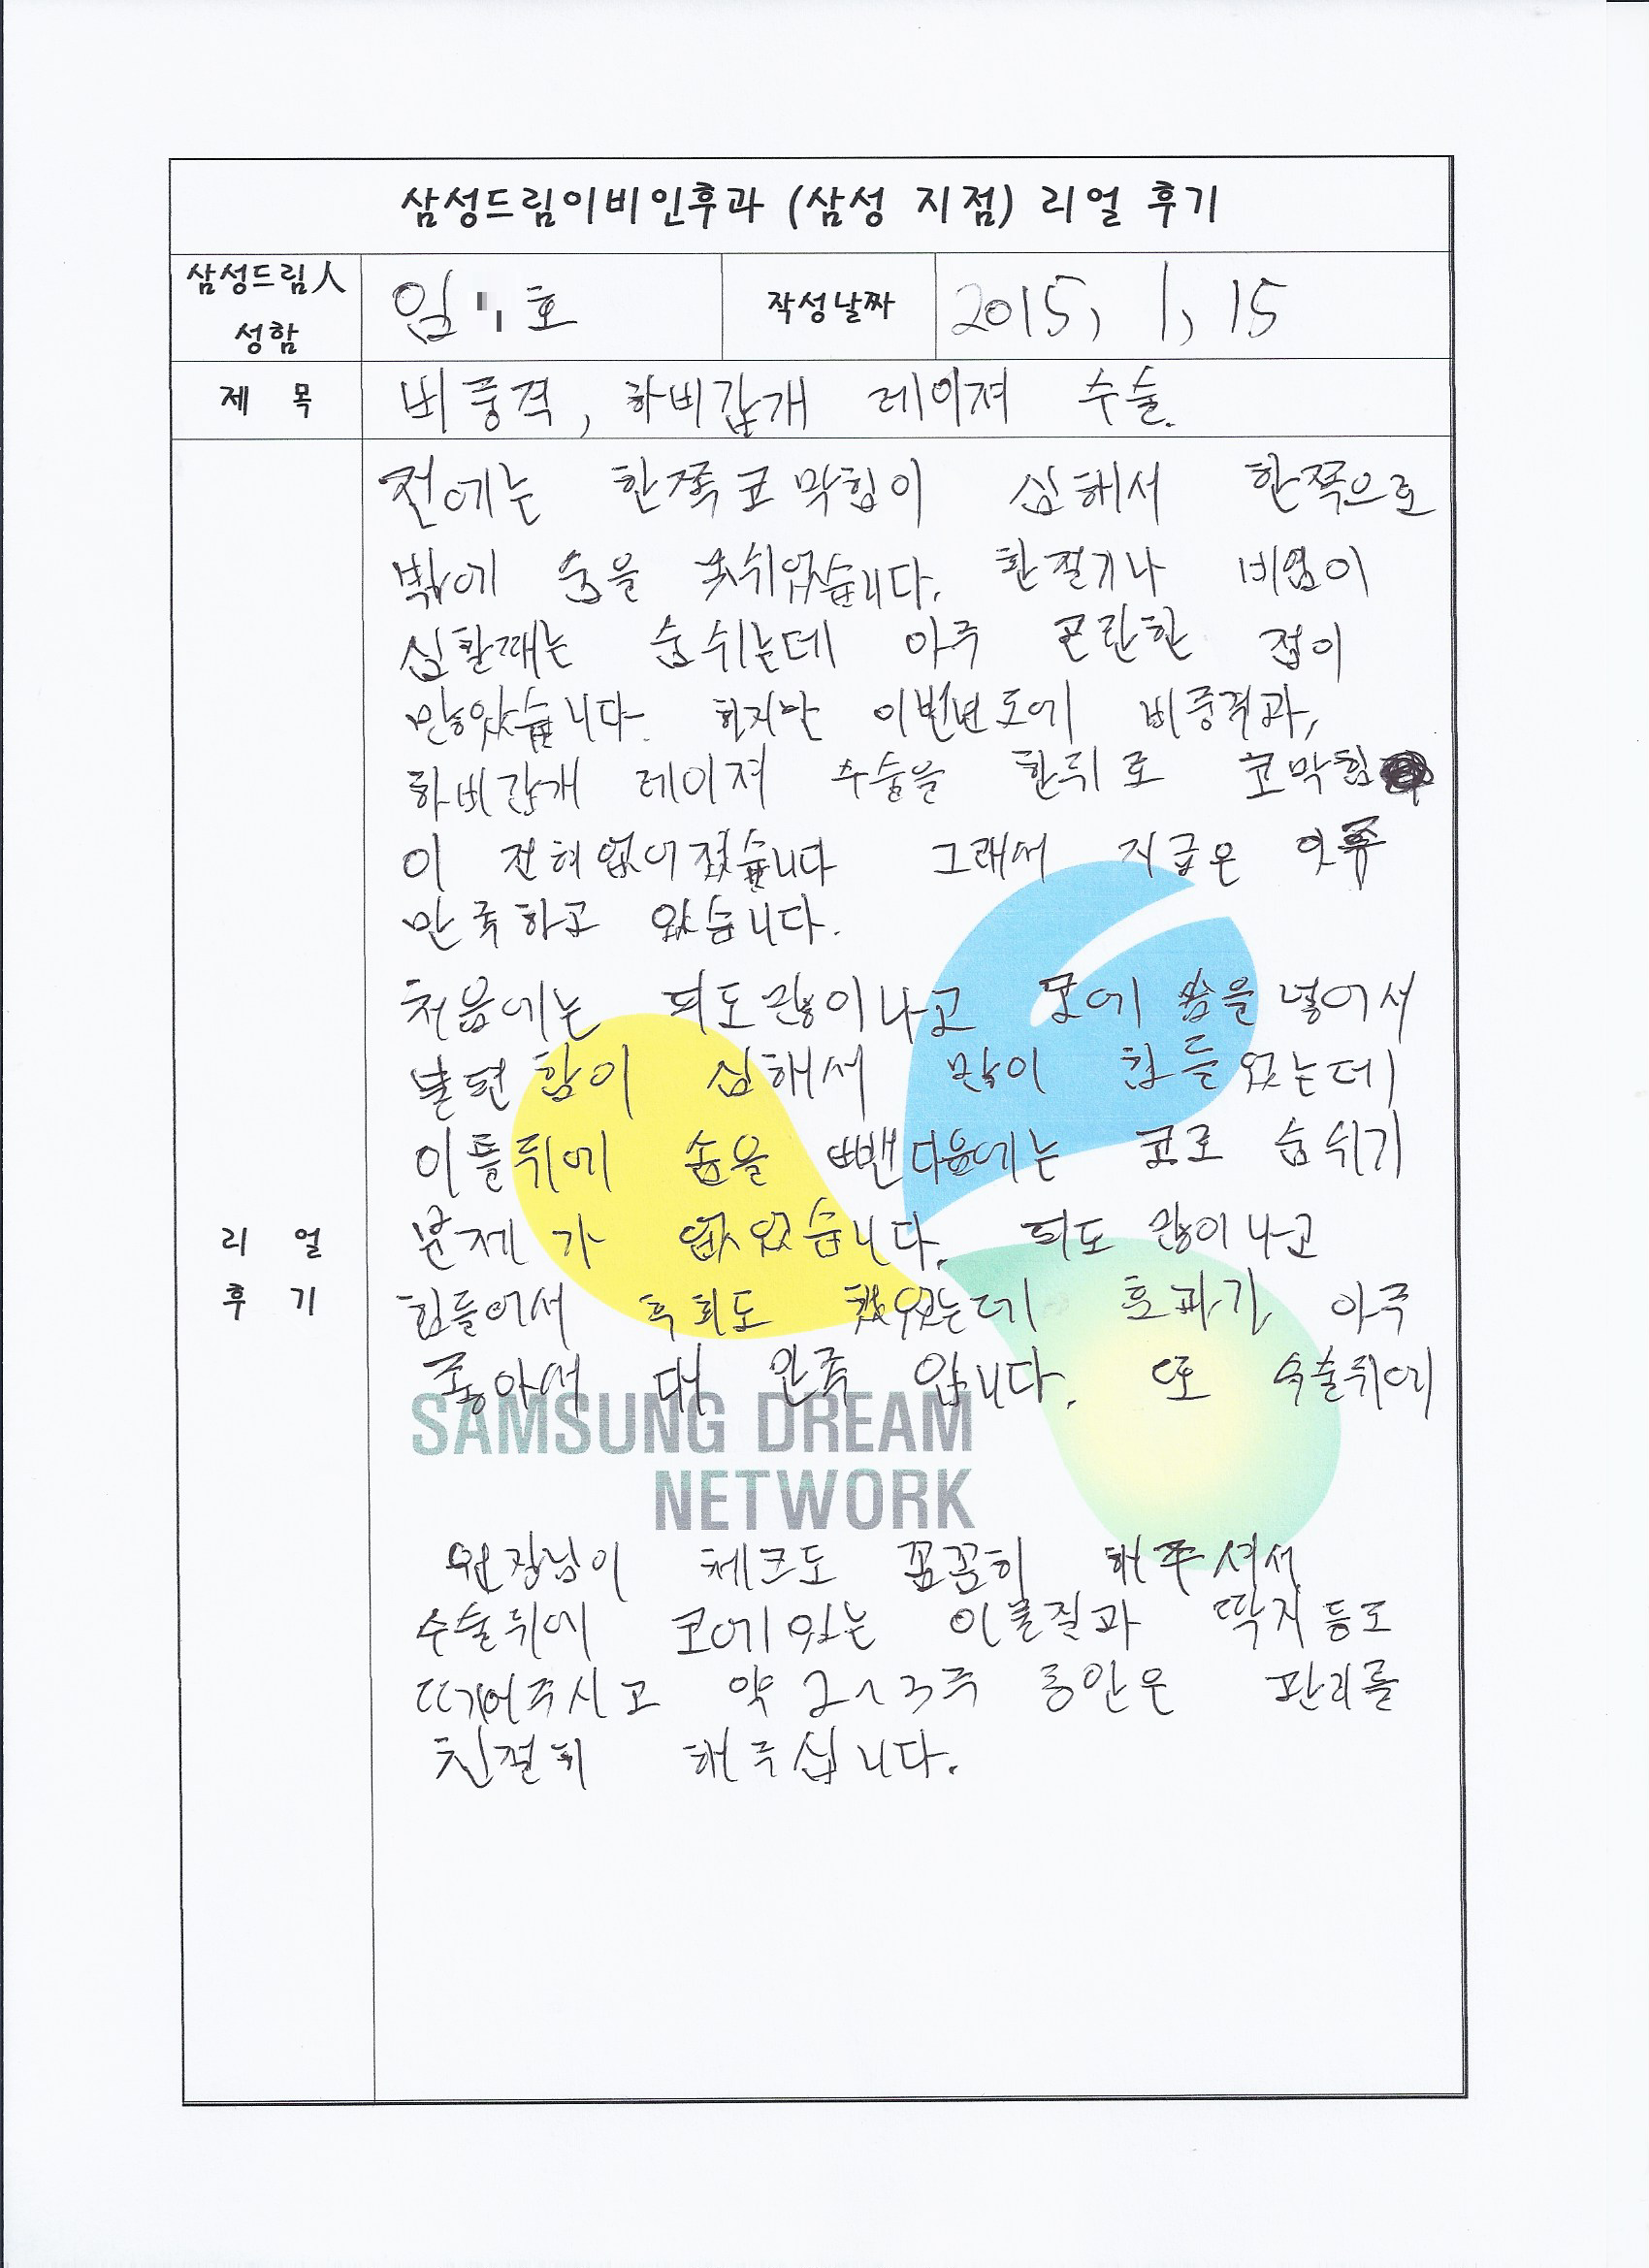 삼성드림이비인후과 (삼성 지점) 리얼 후기
삼성드림人 성함 임 호 작성날짜 2015, 1, 15
제 목 비중격, 하비갑개 레이져 수술.
전에는 한쪽코막힘이 심해서 한쪽으로
밖에 숨을 못쉬었습니다. 환절기나 비염이
심할때는 숨쉬는데 아주 곤란한 점이
많았습니다. 하지만 이번년도에 비중격과,
하비갑개 레이져 수술을 한뒤로 코막힘
이 전혀없어졌습니다 그래서 지금은 아주
만족하고 있습니다.
처음에는 피도많이나고 코에 솜을 넣어서
불편함이 심해서 많이 힘들었는데
이틀뒤에 솜을 뺀다음에는 코로 숨쉬기
문제가 없었습니다. 피도 많이나고
힘들어서 후회도 했었는데 효과가 아주
좋아서 대 만족 입니다. 또 수술뒤에
리 얼
후 기
SAMSUNG DREAM
NETWORK
원장님이 체크도 꼼꼼히 해주셔서
수술뒤에 코에있는 이물질과 딱지등도
띠어주시고 약 2~3주 동안은 관리를
친절히 해주십니다.